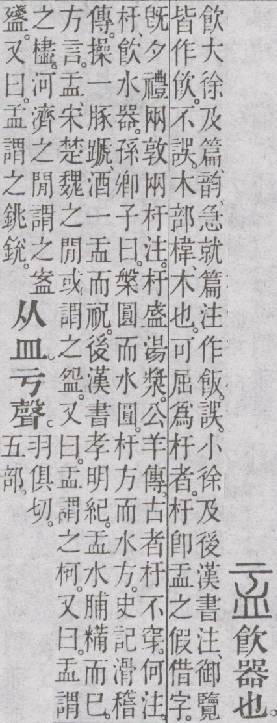 盂飲器也。
飲大徐及篇韵急就篇注作飯。誤。小徐及後漢書注、御覽
皆作飲。不誤。木部楎木也。可屈為杅者。杅卽盂之假借字。
旣夕禮兩敦兩杅。注。杅盛湯漿。公羊傳古者杅不穿。何注。
杅、飲水器。孫卿子曰。槃圓而水圓。杅方而水方。史記滑稽
傳。操一豚蹏酒一盂而祝。後漢書孝明紀。盂水脯糒而巳。
方言。盂、宋楚魏之閒或謂之盌。又曰。盂謂之柯。又曰。盂謂
之 河濟之閒謂之
又曰。盂謂之銚銳。
从皿。亏聲。
羽俱切。
五部。